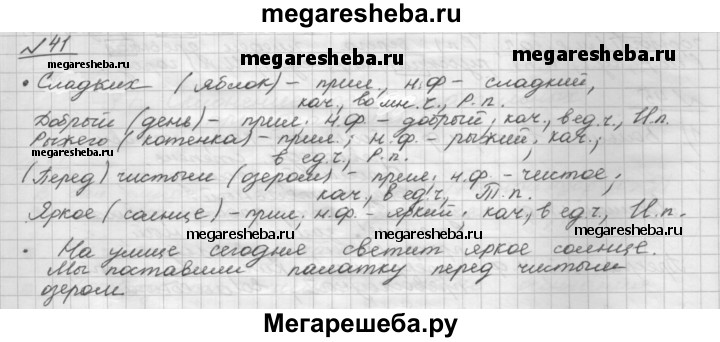 megaresheba.ru
№41
• Сладких (яблок) – прил., н.ф – сладкий,
кач., во мн.ч., Р.п.
Добрый (день) – прил. н.ф. – добрый; кач., в ед.ч., И.п.
Рыжего (котенка) – прил.; н.ф. – рыжий, кач.;
в ед.ч., Р.п.
(Перед) чистым (озером) – прил.; н.ф. – чистое;
кач., в ед.ч., Т.п.
Яркое (солнце) – прил., н.ф. – яркий; кач., в ед.ч., И.п.
• На улице сегодня светит яркое солнце.
Мы поставили палатку перед чистым
озером
megaresheba.ru
megaresheba.ru
megaresheba.ru
megaresheba.ru
megaresheba.ru
megaresheba.ru
Мегарешеба.ру